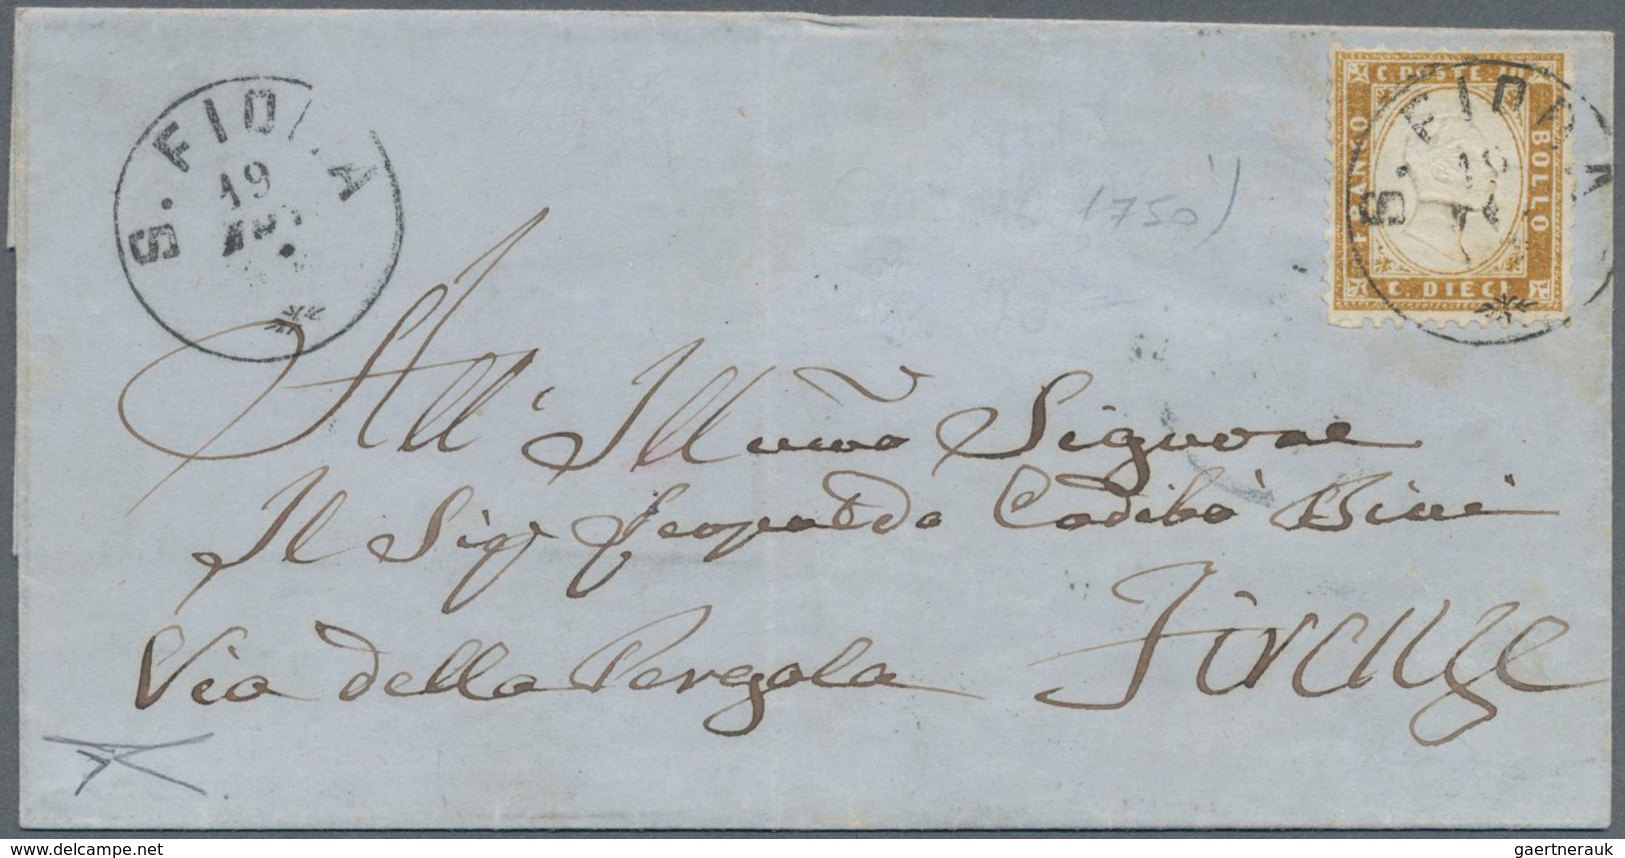 S. FIORA
19
C. POSTE 10
FRANCO
BOLLO
C. DIECI
S. FIORA
1750)
All' Illmo Signore
Il Sig Leopoldo Cadibò Bini
Via della Pergola Firenze
www.delcampe.net
gaertnerauk